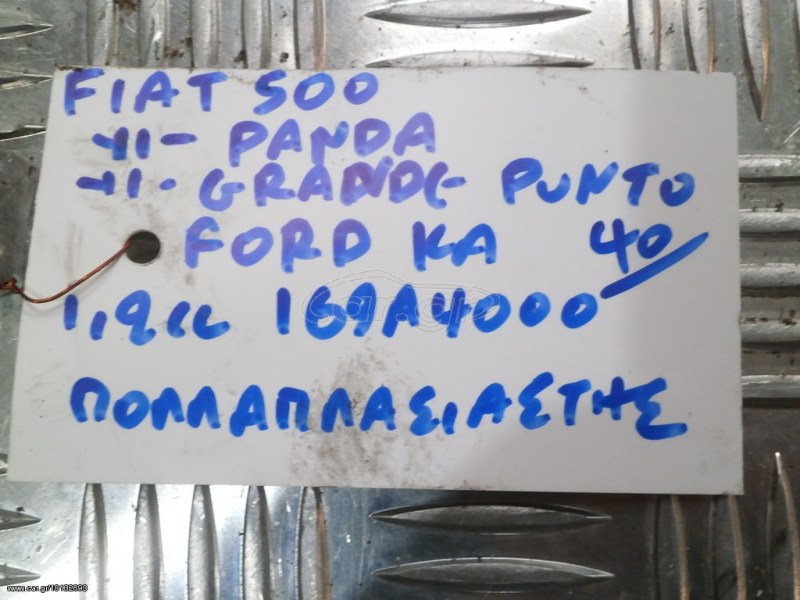 FIAT 500
-11- PANDA
-11- GRANDE PUNTO
FORD KA 40
1,2cc 169A4000
ΠΟΛΛΑΠΛΑΣΙΑΣΤΗΣ
car.gr